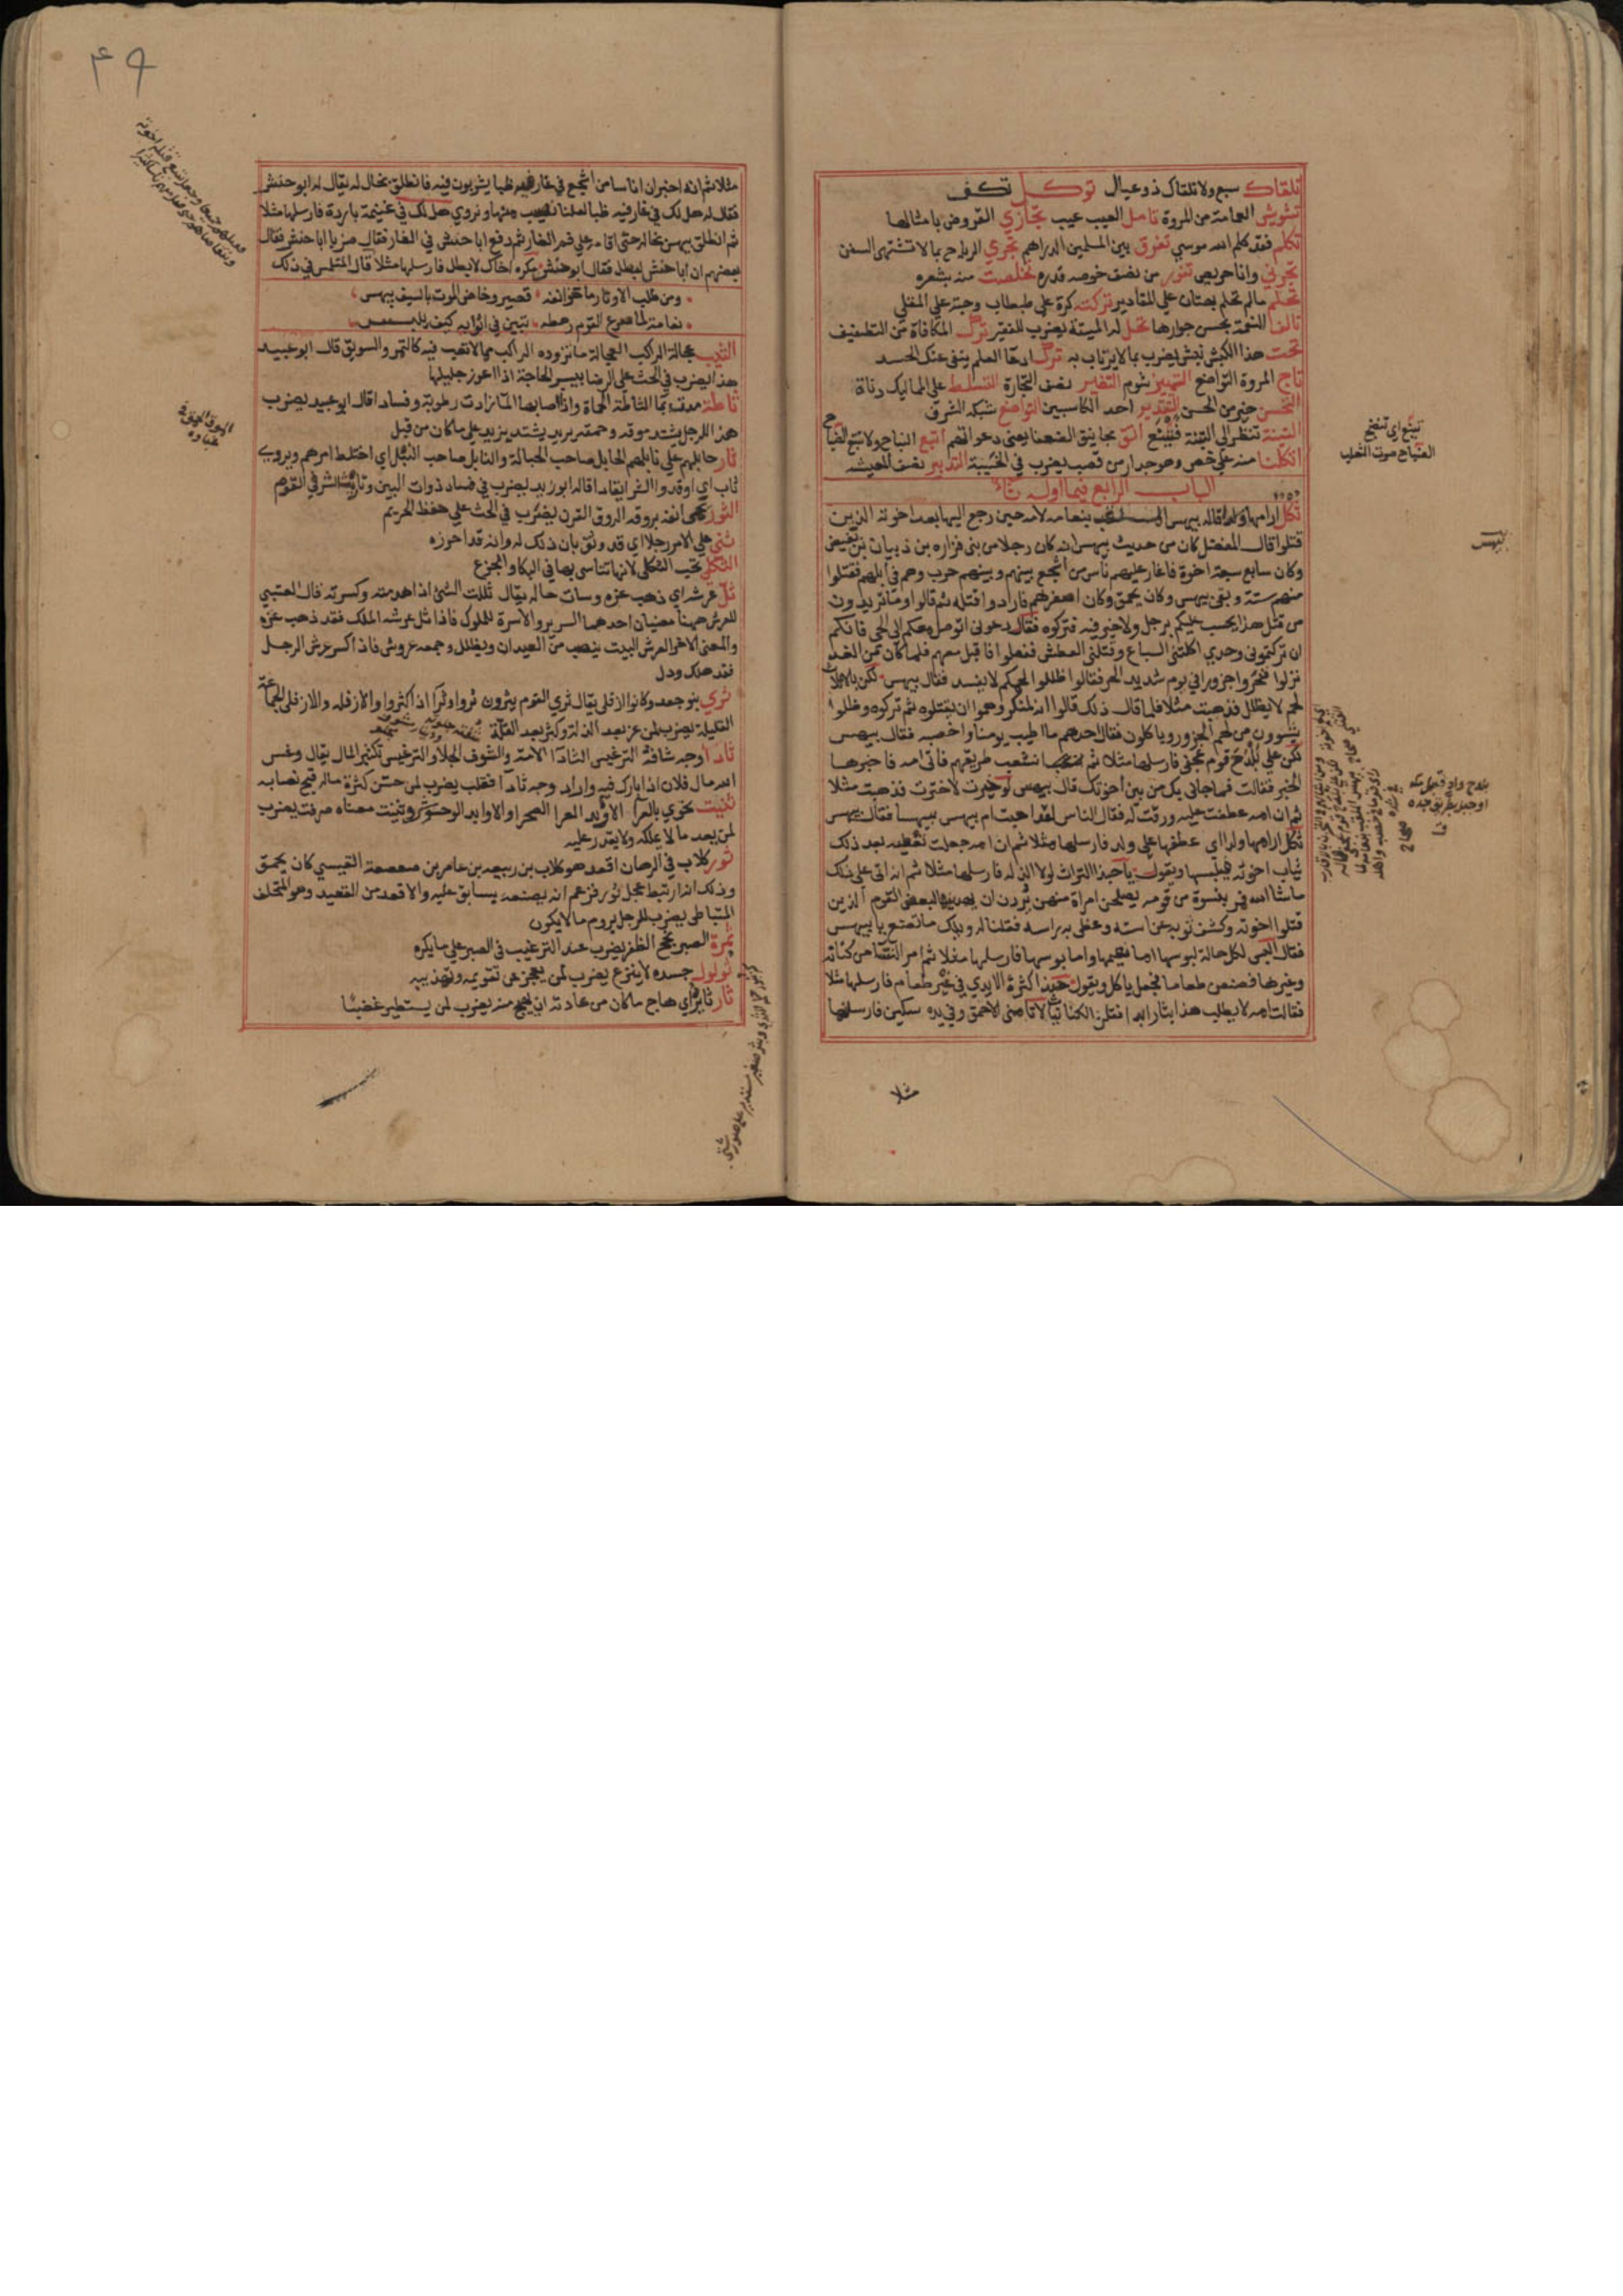 تلقاك سبع ولا تلقاك ذو عيال توكل تكف
تشويش العمامة من المروة تامل العيب عيب تجازي القروض بامثالها
تكلم فقد كلم الله موسي تفرق بين المسلمين الدراهم تجري الرياح بما لا تشتهي السفن
تجرني وانا حريص تنور من نصف خوصه قدره تخلصت منه بشعره
تحلم مالم تحلم بصتان علي المقادير تركته كرة علي طبطاب وحبة علي المقلي
تالف النعمة بحسن جوارها تحل له الميتة يضرب للفقير ترك المكافاة من التطفيف
تحت هذا الكبش نبش يضرب بما لا يرتاب به ترك ادعا العلم ينفي عنك الحسد
تاج المروة التواضع التمييز شوم التفيير نصف التجارة التسلط علي المماليك دناة
التحسن خير من الحسن التقدير احد الكاسبين التواضع شبكة الشرف
التينة تنظر الي التينة فتينع اتق مجانيق الضعفا يعني دعواتهم اتبع النباح ولا تتبع الضباح
اتكلنا منه علي خص وهو جدار من قصب يضرب في الخيبة التدبير نصف المعيشه
الباب الرابع فيما اوله ثاء
ثكل ارامها ولدا قاله بيهس الملقب بنعامه لامه حين رجع اليها بعد اخوته الذين
قتلوا قال المفضل كان من حديث بيهس انه كان رجلا من بني فزاره بن ذبيان بن بغيض
وكان سابع سبعة اخوة فاغار عليهم ناس من اشجع بينهم وبينهم حرب وهم في ابلهم فقتلوا
منهم ستة وبقي بيهس وكان يحمق وكان اصغرهم فارادوا قتله ثم قالوا وما تريدون
من قتل هذا يحسب عليكم برجل ولا خير فيه فتركوه فقال دعوني اتوصل معكم الي الحي فانكم
ان تركتموني وحدي اكلتني السباع وقتلني العطش ففعلوا فاقبل معهم فلما كان من الغد
نزلوا فنحروا جزورا في يوم شديد الحر فقالوا ظللوا لحمكم لا يفسد فقال بيهس لكن بالاثلاث
لحم لا يظلل فذهبت مثلا فلما قال ذلك قالوا انه لمنكر وهموا ان يقتلوه ثم تركوه وظلوا
يشوون من لحم الجزور وياكلون فقال احدهم ما اطيب يومنا واخصبه فقال بيهس
لكن علي بلدح قوم عجفي فارسلها مثلا ثم انشعب طريقهم فاتي امه فاخبرها
الخبر فقالت فما جاني بك من بين اخوتك قال بيهس لو خيرت لاخترت فذهبت مثلا
ثم ان امه عطفت عليه ورقت له فقال الناس لقد احبت ام بيهس بيهسا فقال بيهس
ثكل ارامها ولدا اي عطفها علي ولد فارسلها مثلا ثم ان امه جعلت تعطيه بعد ذلك
ثياب اخوته فيلبسها ويقول يا حبذا التراث لولا الذلة فارسلها مثلا ثم انه اتي علي ذلك
ماشا الله فمر بنسوة من قومه يصلحن امراة منهن يردن ان يهدينها لبعض القوم الذين
قتلوا اخوته وكشف ثوبه عن استه وغطي به راسه فقلنا له ويلك ما تصنع يا بيهس
فقال البس لكل حالة لبوسها اما نعيمها واما بوسها فارسلها مثلا ثم امر النسا من كنانه
وغيرها فصنعن طعاما فجعل ياكل ويقول حبذا كثرة الايدي في غير طعام فارسلها مثلا
فقالت امه لا يطلب هذا بثار ابدا فقلن الكنانيات لا تامني الاحمق وفي يده سكين فارسلتها
مثلا
يتبع اي تنضج
الضباح صوت الثعلب
بيهس
بلدح واد قبل مكه
او جبل بطريق جده
صحاح
٤٩
مثلا ثم انه اخبر ان اناسا من اشجع في غار فيه ظبا يشربون فيه فانطلق بخال له يقال له ابو حنش
فقال له هل لك في غار فيه ظبا لعلنا نصيب منها ونروي هل لك في غنيمة باردة فارسلها مثلا
ثم انطلق بيهس بخاله حتي اقامه علي فم الغار ثم دفع ابا حنش في الغار فقال ضربا ابا حنش فقال
بعضهم ان ابا حنش لبطل فقال ابو حنش مكره اخاك لا بطل فارسلها مثلا قال المتلمس في ذلك
ومن طلب الاوتار ما حز انفه قصير وخاض الموت بالسيف بيهس
نعامة لما صرع القوم رهطه تبين في اثوابه كيف يلبس
الثيب عجالة الراكب العجالة ما تزوده الراكب مما لا تعب فيه كالتمر والسويق قال ابو عبيد
هذا يضرب في الحث علي الرضا بيسير الحاجة اذا اعوز جليلها
ثاطة مدت بما الثاطة الحماة واذا اصابها الما زادت رطوبة وفسادا قال ابو عبيد يضرب
هذا للرجل يشتد موقه وحمقه يريد يشتد يزيد علي ما كان من قبل
ثار حابلهم علي نابلهم الحابل صاحب الحبالة والنابل صاحب النبل اي اختلط امرهم ويروي
ثاب اي اوقدوا الشر ايقادا قاله ابو زيد يضرب في فساد ذوات البين وتاريث الشر في القوم
الثور يحمي انفه بروقه الروق القرن يضرب في الحث علي حفظ الحريم
ثني علي الامر رجلا اي قد وثق بان ذلك له وانه قد احرزه
الثكلي تحب الثكلي لانها تتاسي بها في البكا والجزع
ثل عرشه اي ذهب عزه وسات حاله يقال ثللت الشي اذا هدمته وكسرته قال العتبي
للعرش ههنا معنيان احدهما السرير والاسرة للملوك فاذا ثل عرشه الملك فقد ذهب عزه
والمعني الاخر العرش البيت ينصب من العيدان ويظلل وجمعه عروش فاذا كسر عرش الرجل
فقد هلك وذل
ثري بنو جعد وكانوا ازفلي يقال ثري القوم يثرون ثروا وثرا اذا كثروا والازفله والازفلي الجماعة
القليلة يضرب لمن عز بعد الذلة وكثر بعد القلة
ثادا وجه شافه الترغيس الثادا الامة والشوف الجلا والترغيس تكثير المال يقال رغس
الله مال فلان اذا بارك فيه واراد وجه ثادا فقلب يضرب لمن حسن كثرة ماله قبح نصابه
ثنيت نحوي بالعرا الاوابد العرا الصحرا والاوابد الوحوش وثنيت معناه صرفت يضرب
لمن يعد ما لا يملكه ولا يقدر عليه
ثور كلاب في الرهان اقعد هو كلاب بن ربيعه بن عامر بن صعصعة القيسي كان يحمق
وذلك انه ارتبط عجل ثور فزعم انه يصنعه يسابق عليه والاقعد من القعيد وهو المتخلف
المتباطي يضرب للرجل يروم ما لا يكون
ثمرة الصبر نجح الظفر يضرب عند الترغيب في الصبر علي ما يكره
ثولول جسده لا ينزع يضرب لمن يعجز عن تقويمه وتهذيبه
ثار ثايره اي هاج ما كان من عادته ان يهيج منه يضرب لمن يستطير غضبا